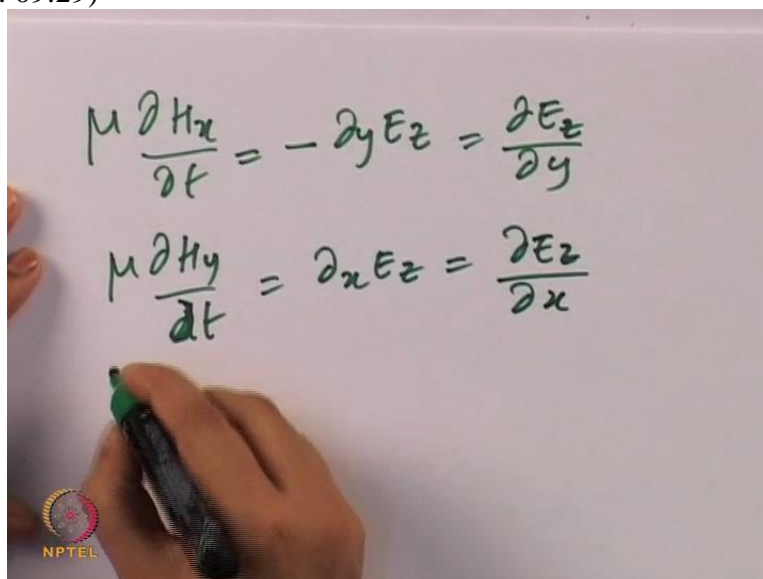 : 09:29)
μ ∂Hx/∂t = - ∂yEz = ∂Ez/∂y
μ ∂Hy/∂t = ∂xEz = ∂Ez/∂x
NPTEL